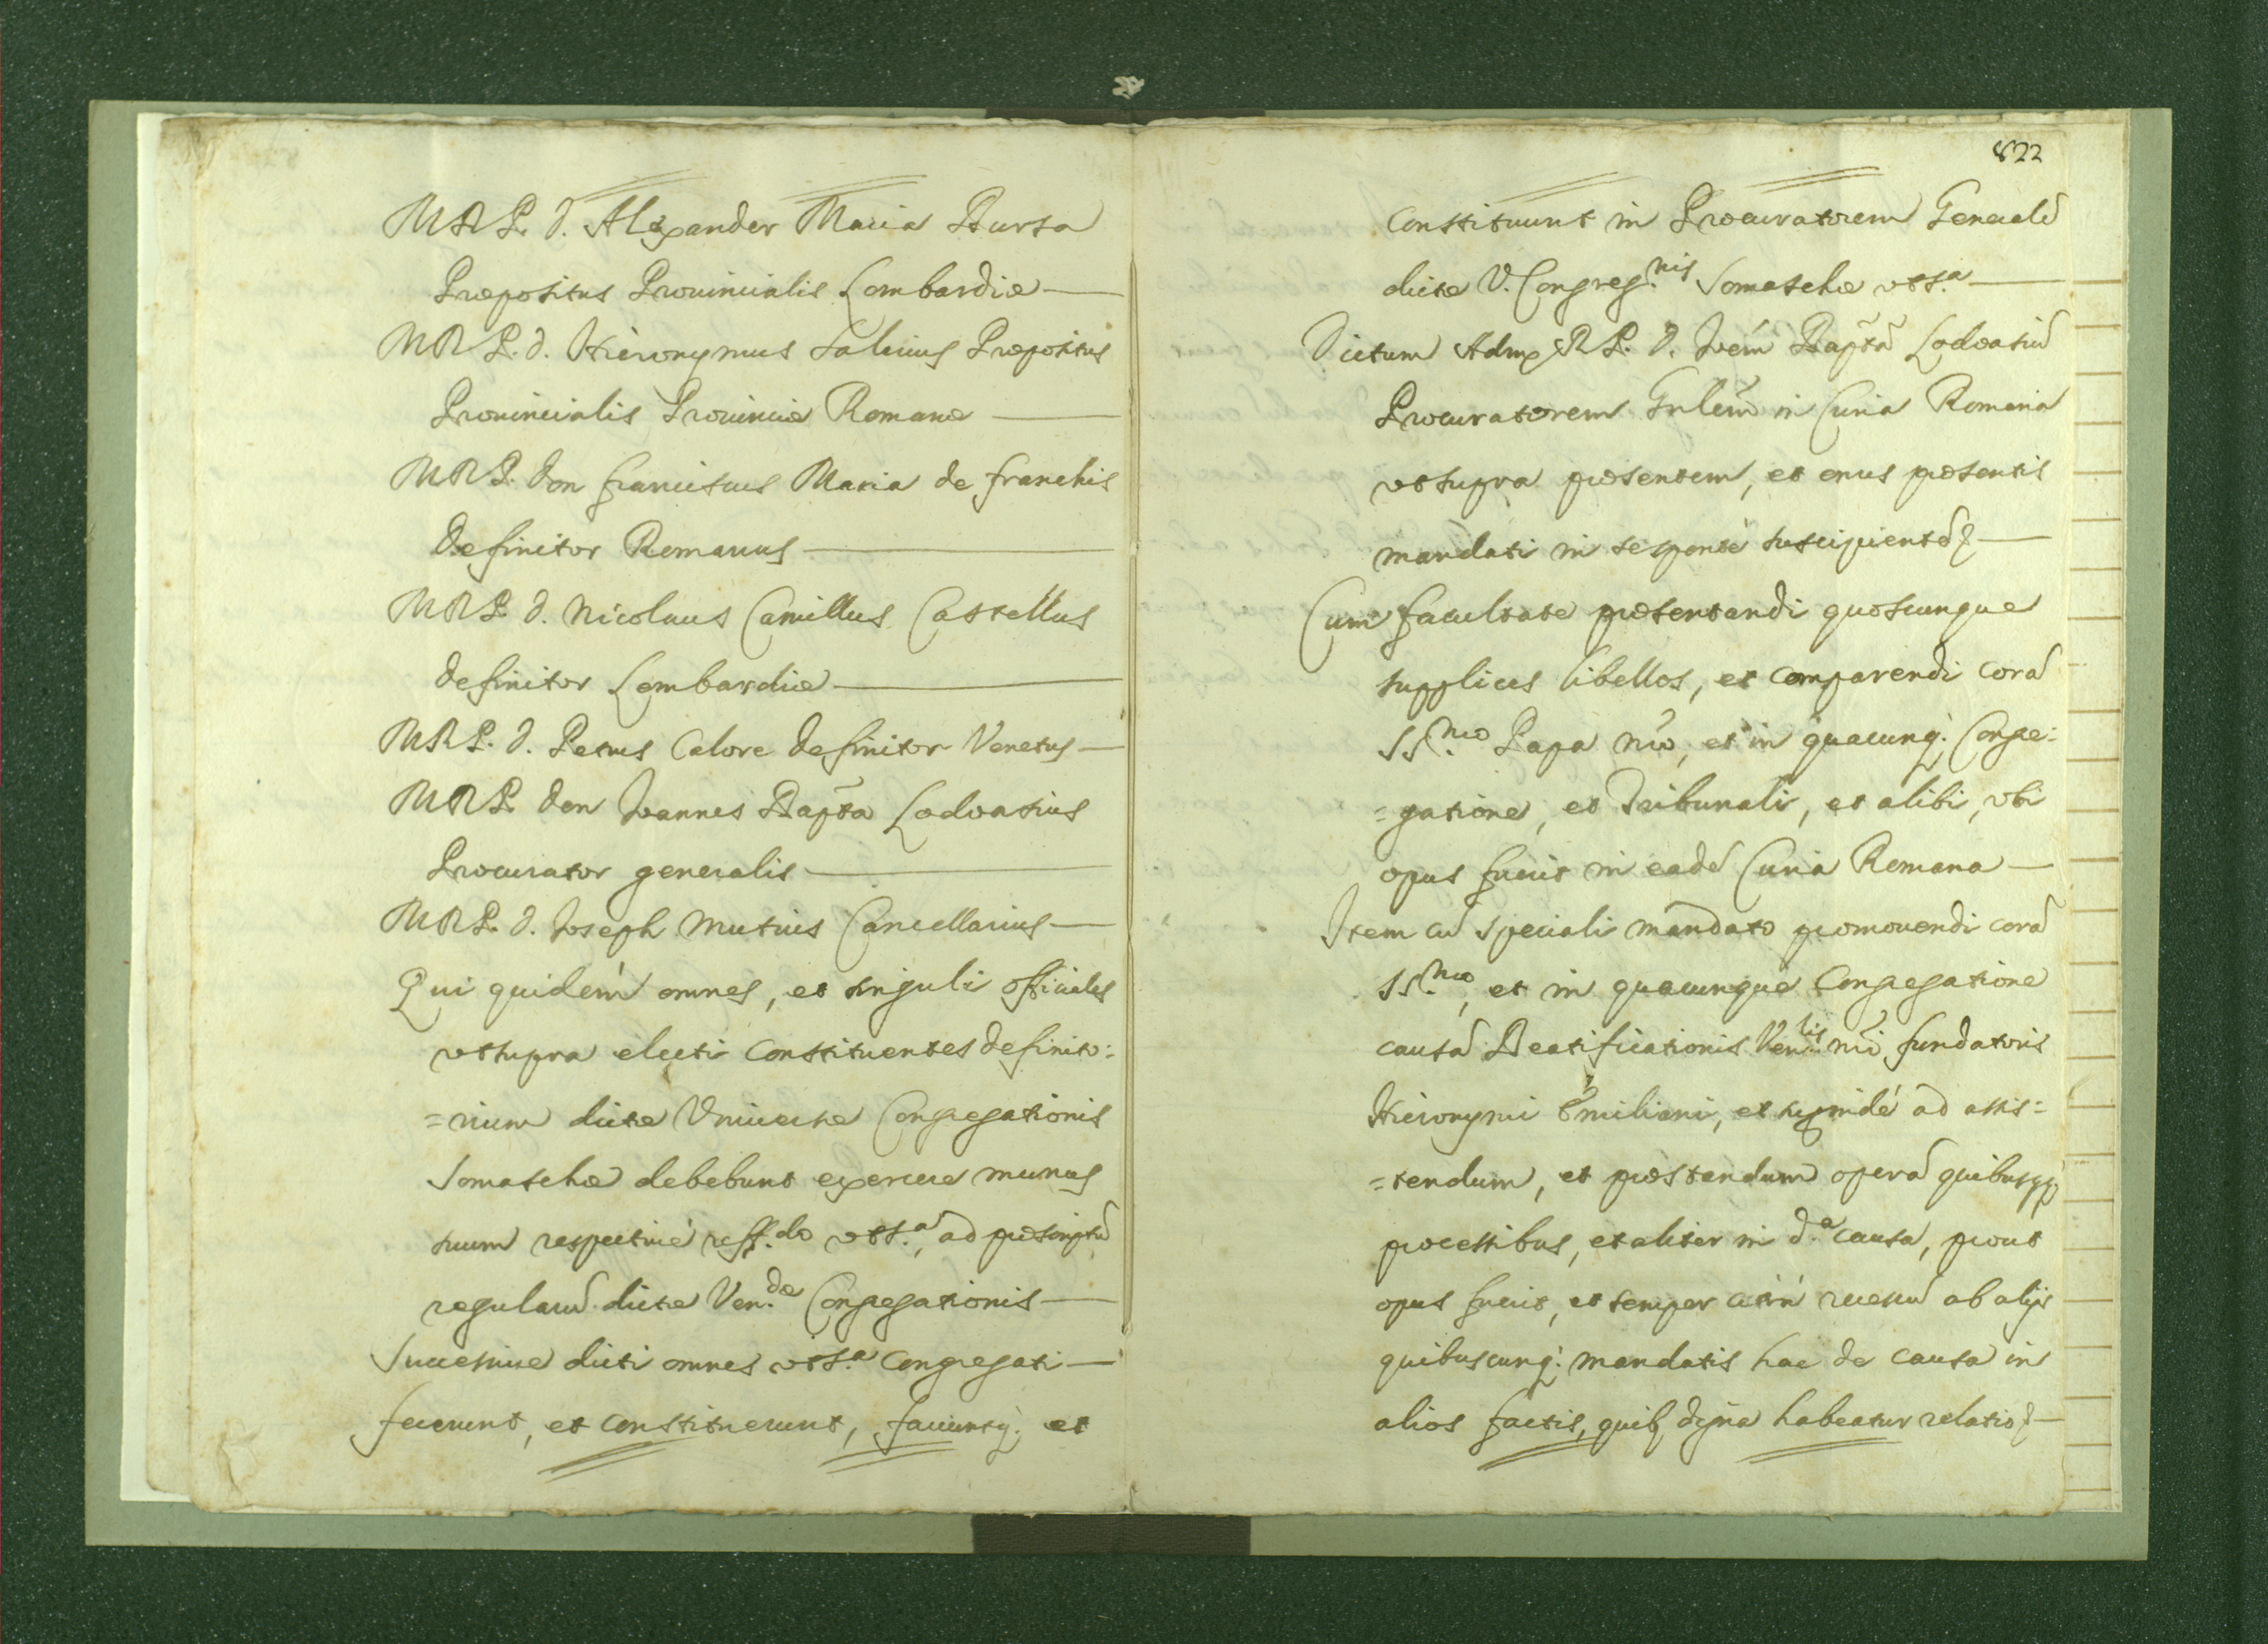 MRP. D. Alexander Maria Bursa
Præpositus Prouincialis Lombardiæ
MRP. D. Hieronymus Salinus Præpositus
Prouincialis Prouinciæ Romanæ
MRP. Don Franciscus Maria de Franchis
Definitor Romanus
MRP. D. Nicolaus Camillus Castellus
Definitor Lombardiæ
MRP. D. Petrus Calore Definitor Venetus
MRP. Don Joannes Bapta Lodoasius
Procurator generalis
MRP. D. Joseph Mutius Cancellarius
Qui quidem omnes, et singuli officiales
vt supra electi constituentes definito:
=rium dictæ Vniuersæ Congregationis
Somaschæ debebunt exercere munus
suum respectiuè reff.do vts.a, ad præscriptũ
regularũ dictæ Ven.dæ Congregationis
Successiue dicti omnes vts.a Congregati
fecerunt, et constituerunt, faciuntq; et
822
constituunt in Procuratorem Generalẽ
dictæ V. Congreg.nis Somaschæ vts.a
Dictum Adm RP. D. Joem Baptã Lodoasiũ
Procuratorem Gnlem in Curia Romana
vt supra præsentem, et onus præsentis
mandati in se sponte suscipientẽ
Cum facultate præsentandi quoscunque
supplices libellos, et comparendi corã
SS.mo Papa nro, et in quacunq; Congre:
=gatione, et Tribunali, et alibi, vbi
opus fuerit in eadẽ Curia Romana
Item cũ speciali mandato promouendi corã
SS.mo, et in quacunque Congregatione
causã Beatificationis Ven.lis nri fundatoris
Hieronymi Æmiliani, et ad assis:
=tendum, et præstandum operã
processibus, et aliter in d.a causa, prout
opus fuerit, et semper citrà recessũ ab alijs
quibuscunq; mandatis hac de causa in
alios factis, quib, digna habeatur relatio